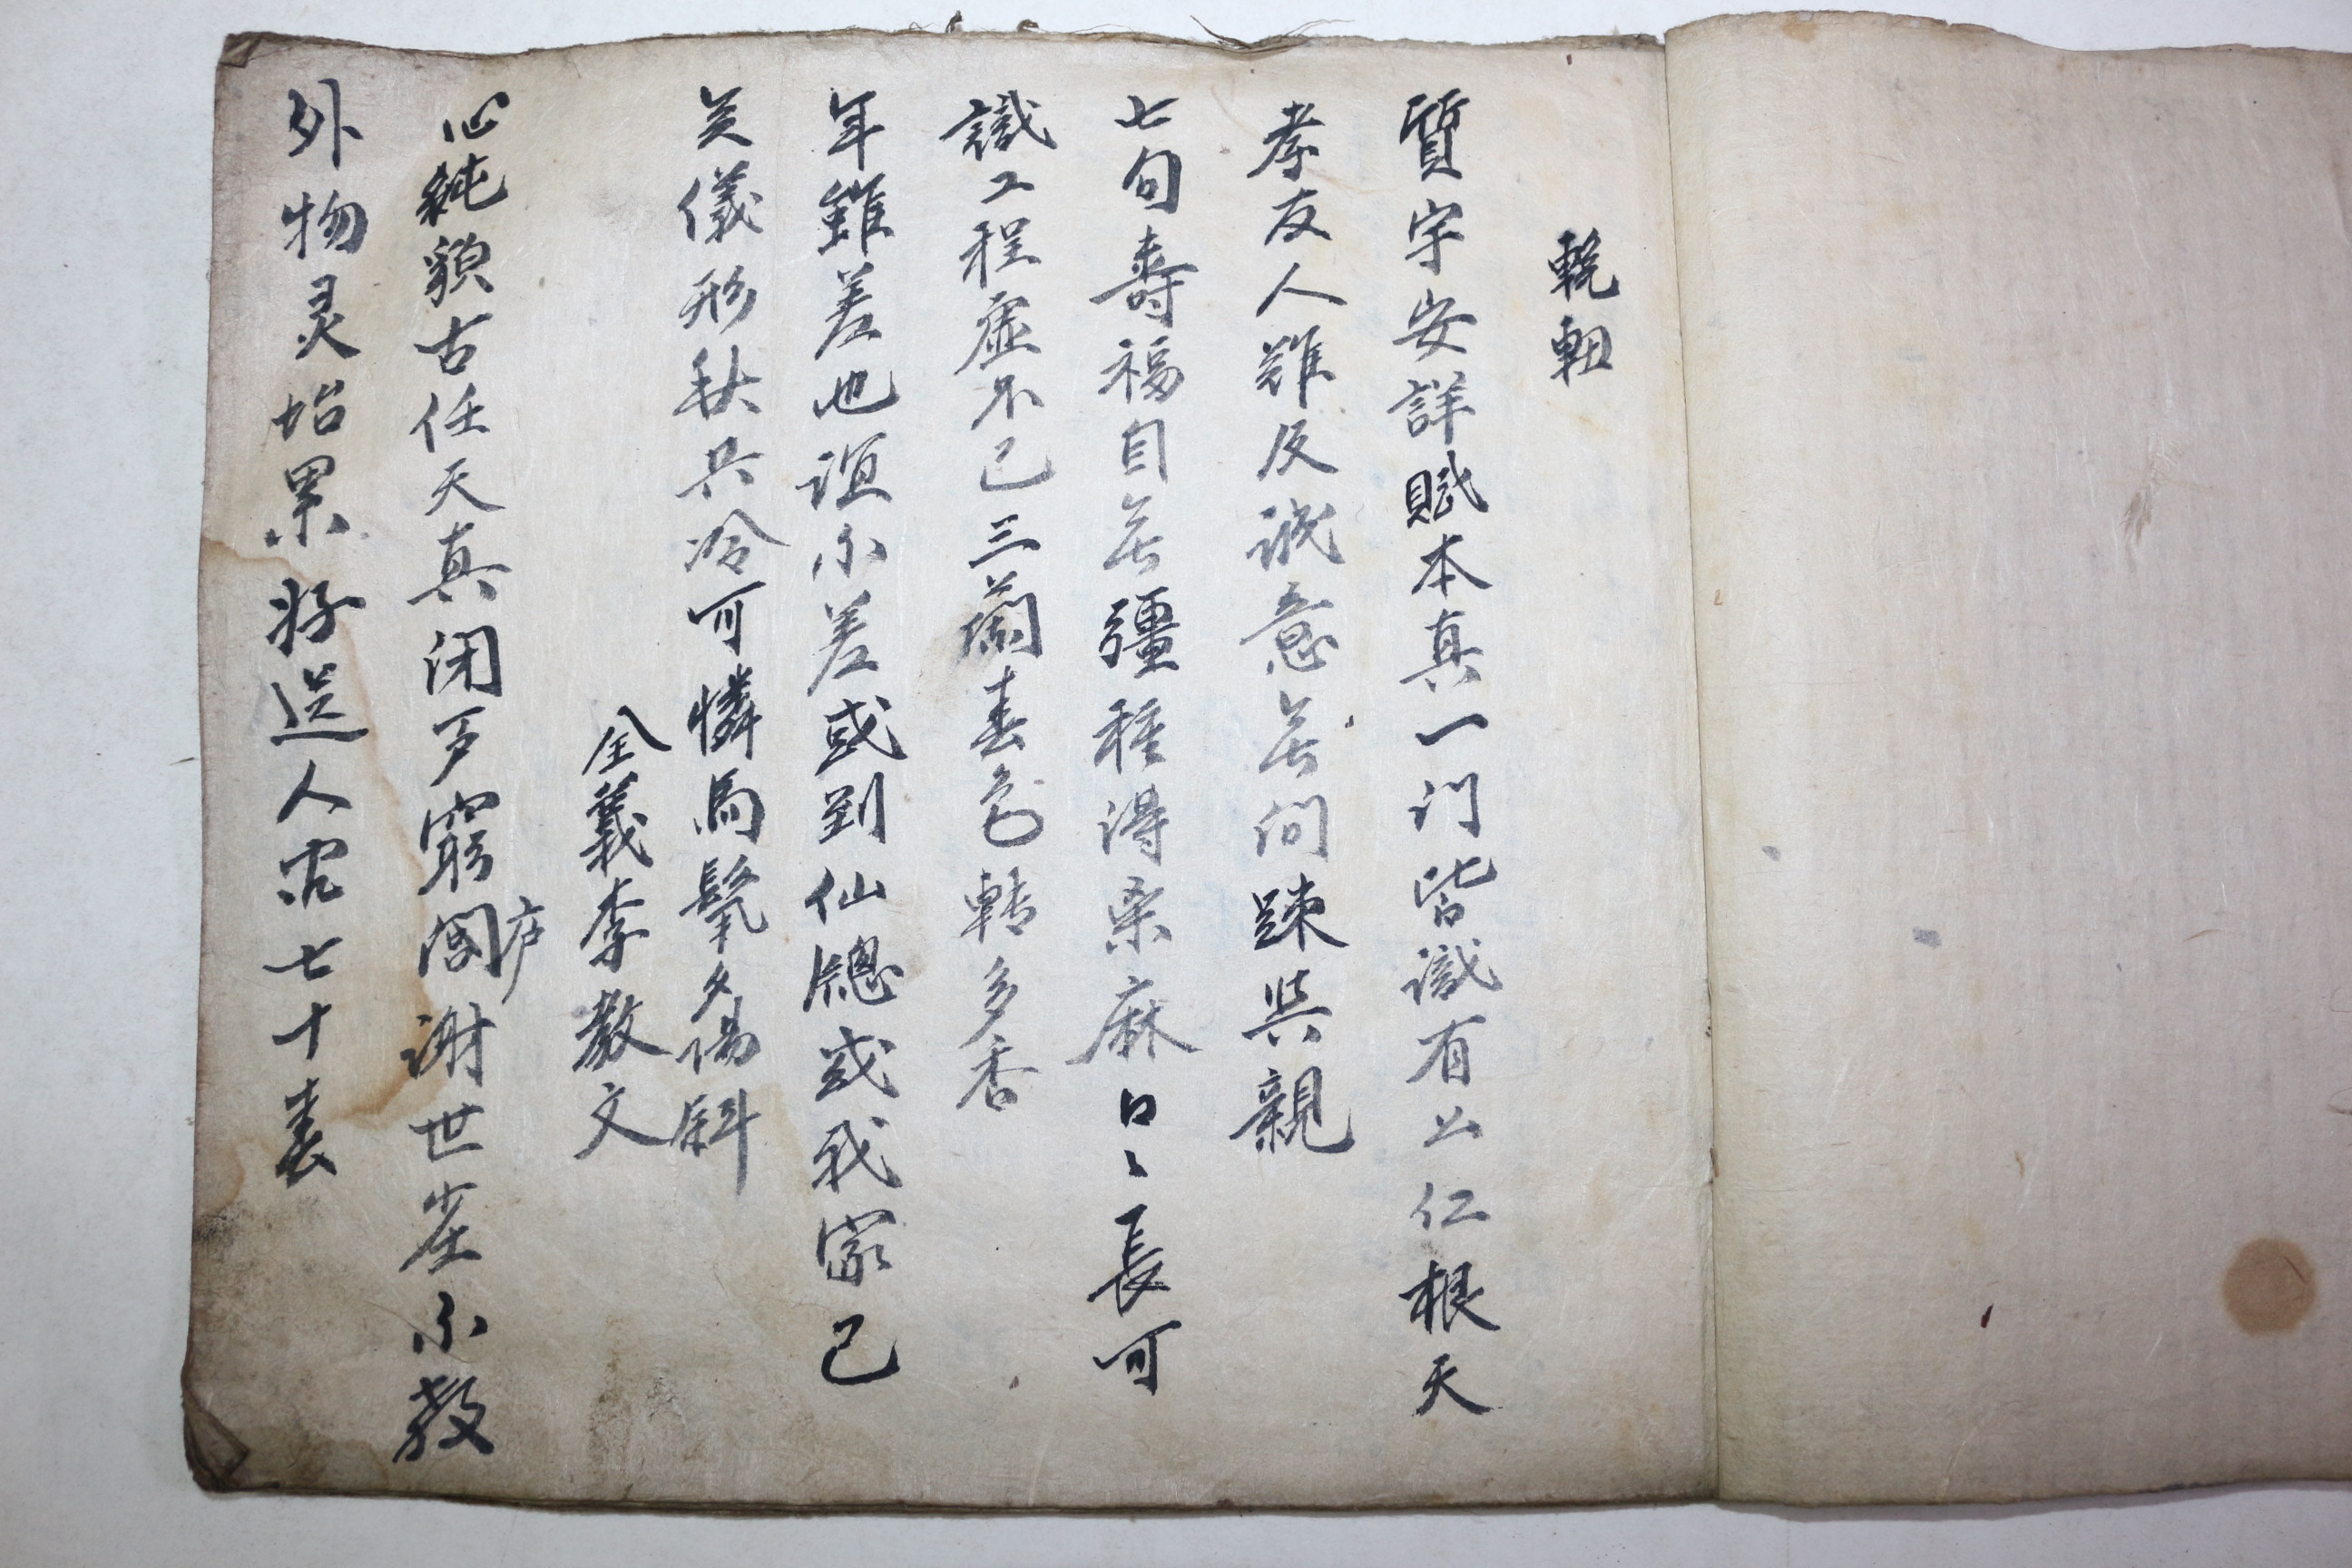 輓
質宇安詳賦本真一门皆識有公仁根天
孝友人難及誠意無间踈與親
七旬壽福自無彊種得桑麻日〻長可
識工程虛不已三蘭春色轉多香
年雖差也誼不差或到仙牕或我家已
矣儀形秋共冷可憐馬鬣夕陽斜
全義李教文
心純貌古任天真闭戶窮閻謝世塵不教
庐
外物灵坮累好送人七十春